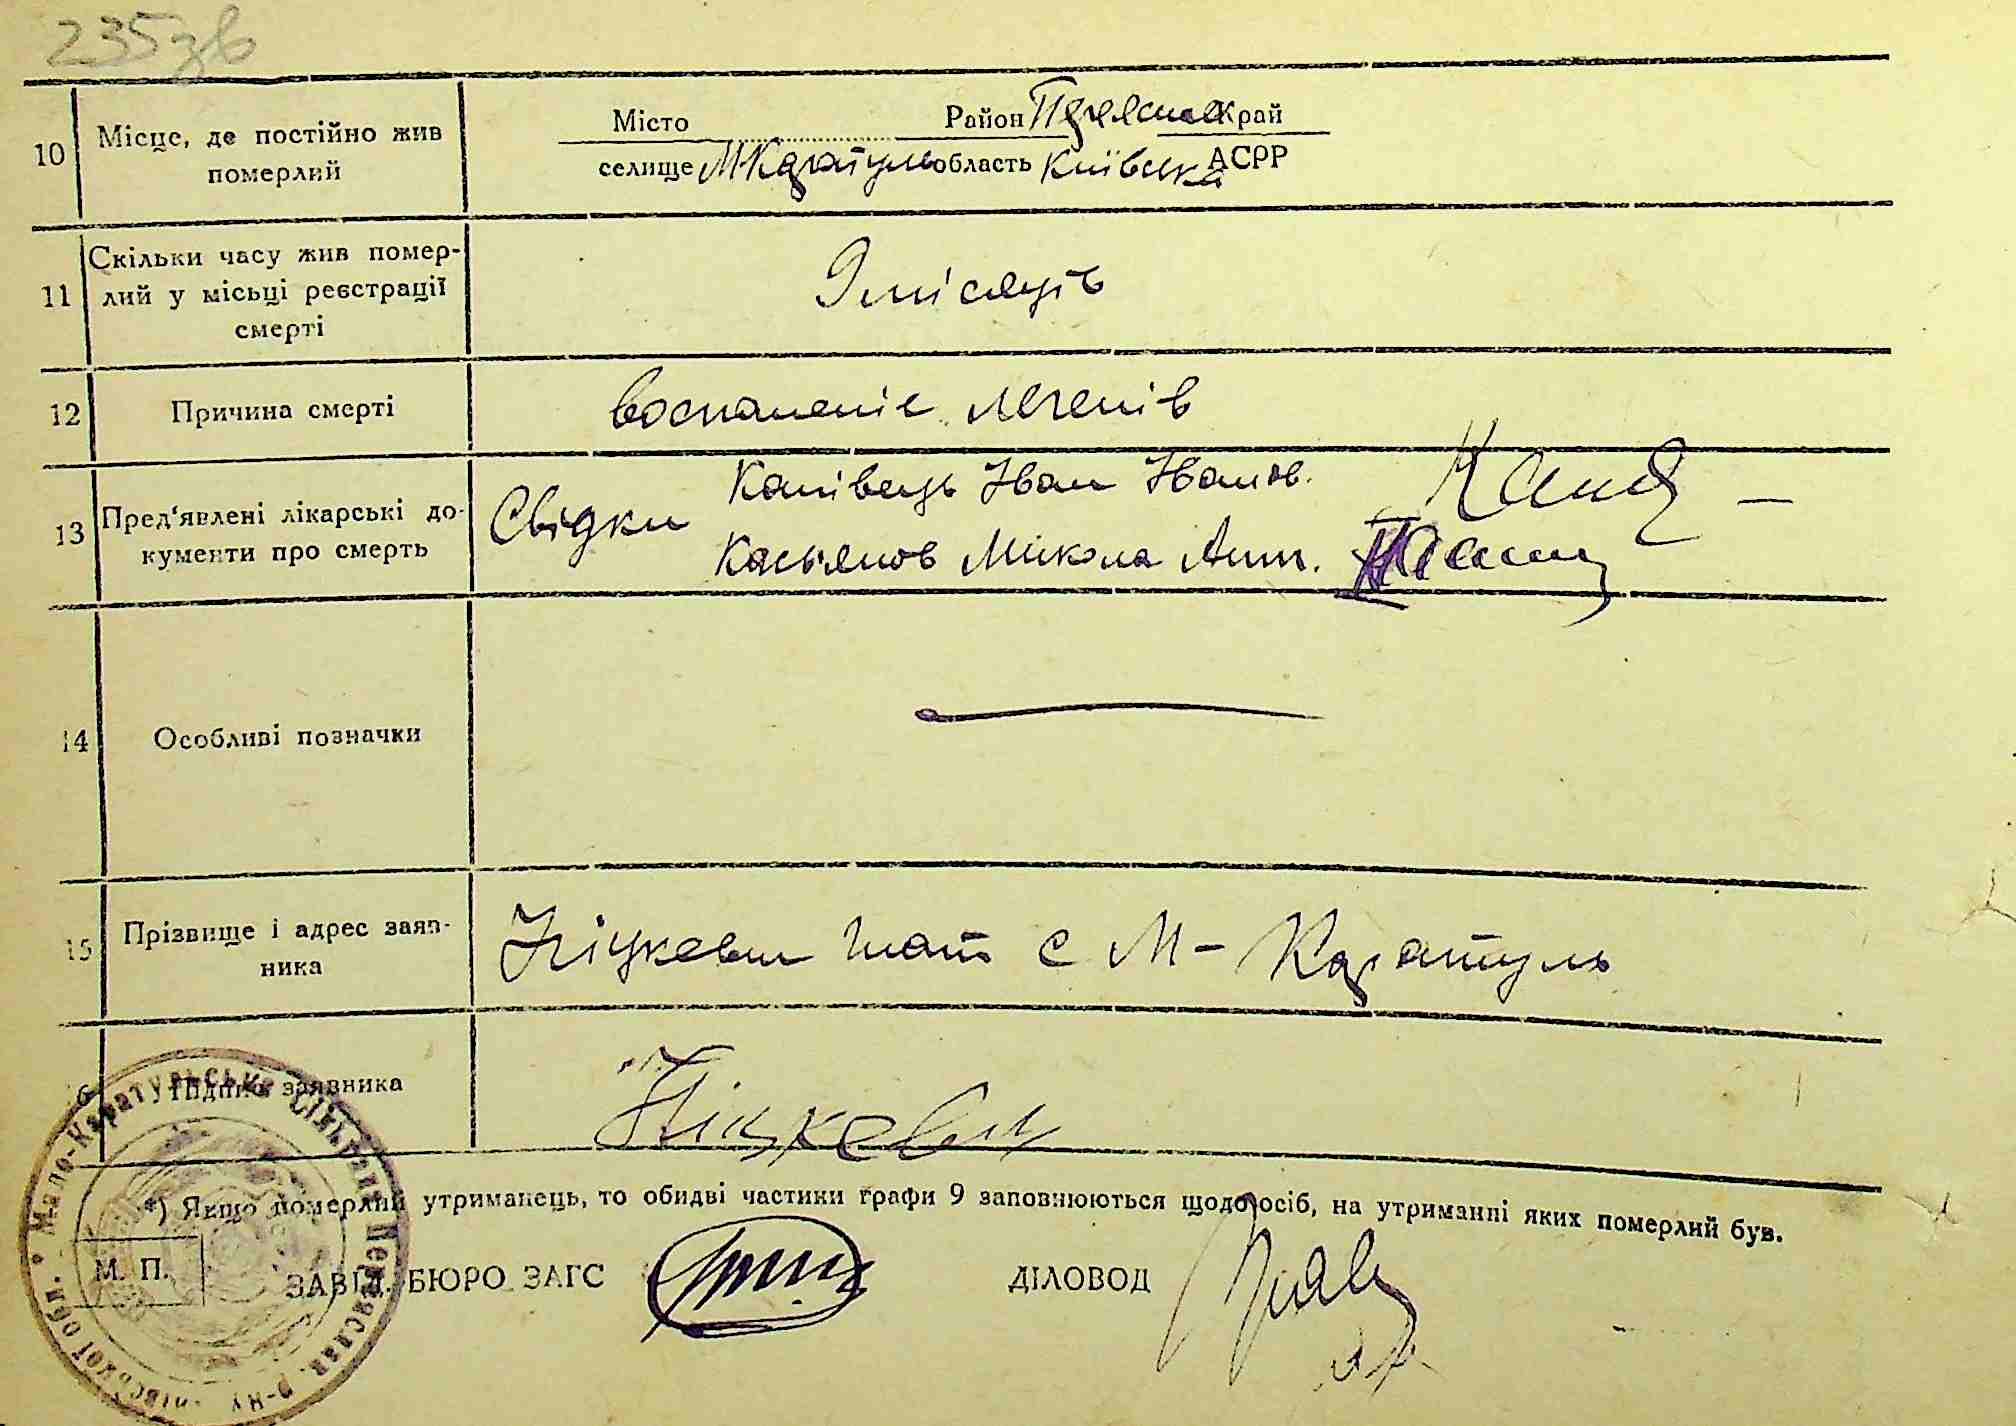 235зв
10 Місце, де постійно жив померлий
Місто Район Переяслав Край
селище М Каратуль область Київська АСРР
11 Скільки часу жив помер-
лий у місьці реєстрації
смерті
9 місяців
12 Причина смерті
воспаленіє легенів
13 Пред'явлені лікарські до-
кументи про смерть
Свідки
Канівець Іван Іванов.
Касьянов Микола Ант.
14 Особливі позначки
15 Прізвище і адрес заяв-
ника
Ніцкевич Гнат с М-Каратуль
16 Підпис заявника
Ніцкевич
*) Якщо померлий утриманець, то обидві частини графи 9 заповнюються щодо осіб, на утриманні яких померлий був.
М. П.
ЗАВІД. БЮРО ЗАГС
ДІЛОВОД
Мало-Каратульська сільрада Переяслав. р-ну Київської обл.